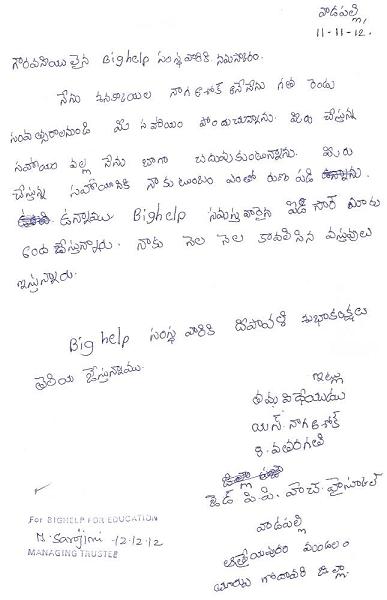 వాడపల్లి,
11-11-12.
గౌరవనియులైన Bighelp సంస్థ వారికి నమస్కారం.
నేను నాగ అశోక్ అనేనేను గత రెండు
సంవత్సరాలనుండి మీ సహాయం పొందుచున్నాను. మీరు చేస్తున్న
సహాయం వల్ల నేను బాగా చదువుకుంటున్నాను. మీరు
చేస్తున్న సహాయానికి నా కుటుంబం ఎంతో రుణ పడి
ఉన్నాము. Bighelp సమస్త వారైన సార్ మాకు
అంద చేస్తున్నారు. నాకు నెల నెల కావలిసిన వస్తువులు
ఇస్తున్నారు.
Bighelp సంస్థ వారికి దీపావళి శుభాకంక్షలు
తెలియ చేస్తున్నాము.
ఇట్లు
తమ విధేయుడు
యస్. నాగ అశోక్
8. వతరగతి
జెడ్ పి. పి. హెచ్ హైస్కూల్
వాడపల్లి
ఆత్రేయపురం మండలం
తూర్పు గోదావరి జిల్లా.
For BIGHELP FOR EDUCATION
N. Sarojini 12-12-12
MANAGING TRUSTEE